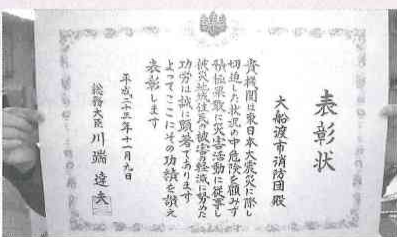 表彰状
大船渡市消防団殿
貴機関は東日本大震災に際し
切迫した状況の中危険を顧みず
積極果敢に災害活動に従事し
被災地域住民の被害の軽減に努めた
功労は誠に顕著であります
よってここにその功績を讃え
表彰します
平成二十三年十一月九日
総務大臣 川端達夫